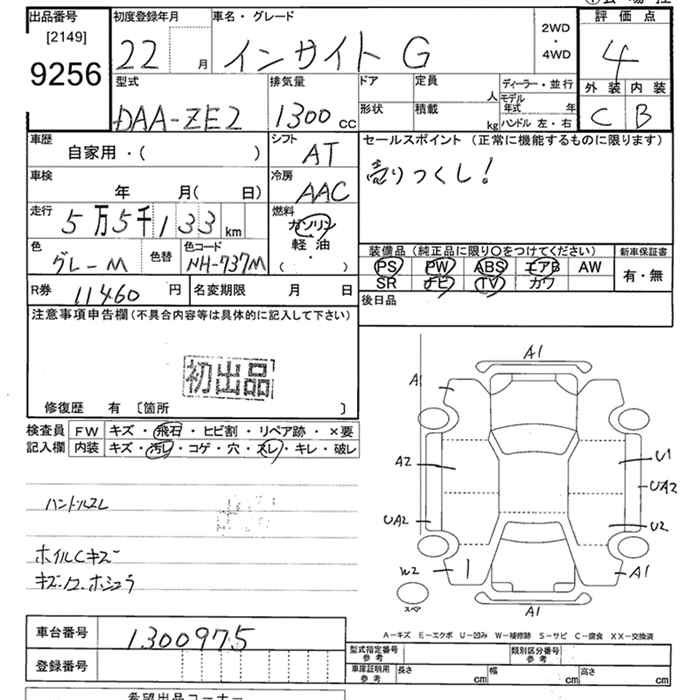 出品番号 初度登録年月 車名・グレード 2WD 評価点
[2149] 22 月 インサイト G ・ 4
9256 4WD
型式 排気量 ドア 定員 人 ディーラー・並行 外装 内装
DAA-ZE2 1300 CC 形状 積載 kg モデル年式 年 C B
ハンドル 左・右
車歴 シフト セールスポイント (正常に機能するものに限ります)
自家用・( ) AT 売りつくし!
車検 冷房
年 月( 日) AAC
走行 燃料
5万5千133 km ガソリン
色 色替 色コード 軽油 装備品 (純正品に限り○をつけてください) 新車保証書
グレーM NH-737M ( ・ ) PS PW ABS エアB AW 有・無
R券 11460 円 名変期限 月 日 SR ナビ TV カワ
後日品
注意事項申告欄(不具合内容等は具体的に記入して下さい)
初出品
修復歴 有 〔箇所 〕
検査員 FW キズ・飛石・ヒビ割・リペア跡・×要
記入欄 内装 キズ・汚レ・コゲ・穴・スレ・キレ・破レ
ハンドルスレ
ホイルCキズ
A1
A1
A2 U1
UA2
UA2 U2
W2 A1
スペア A1
A-キズ E-エクボ U-凹み W-補修跡 S-サビ C-腐食 XX-交換済
車台番号 1300975 型式指定番号 参考 類別区分番号 参考
登録番号 車庫証明用 参考 長さ cm 幅 cm 高さ cm
希望出品コーナー